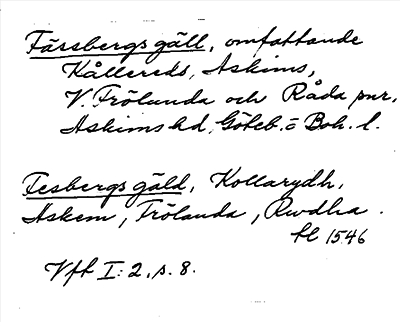 Färsbergs gäll, omfattande
Kållereds, Askims,
V. Frölunda och Råda pnr,
Askims hd, Göteb. o Boh. l.
Fesbergs gäld, Kollarydh,
Askem, Frölunda, Rwdha.
1546
Vfl I: 2, s. 8.